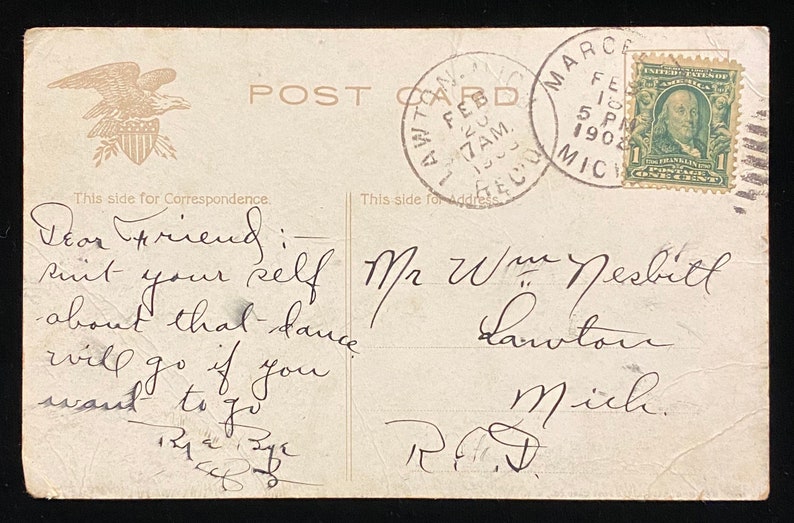 POST CARD
LAWTON, MICH.
FEB
20
7 AM.
REC'D.
MARCE
FEB
5 PM
190
MICH
SERIES 1902
UNITED STATES OF
AMERICA
1706 FRANKLIN 1790
1 POSTAGE 1
ONE CENT
This side for Correspondence.
This side for Address.
Dear Friend:—
suit your self
about that dance
will go if you
want to go
Bye Bye
Mr Wm Nesbitt
Lawton
Mich.
R.F.D.